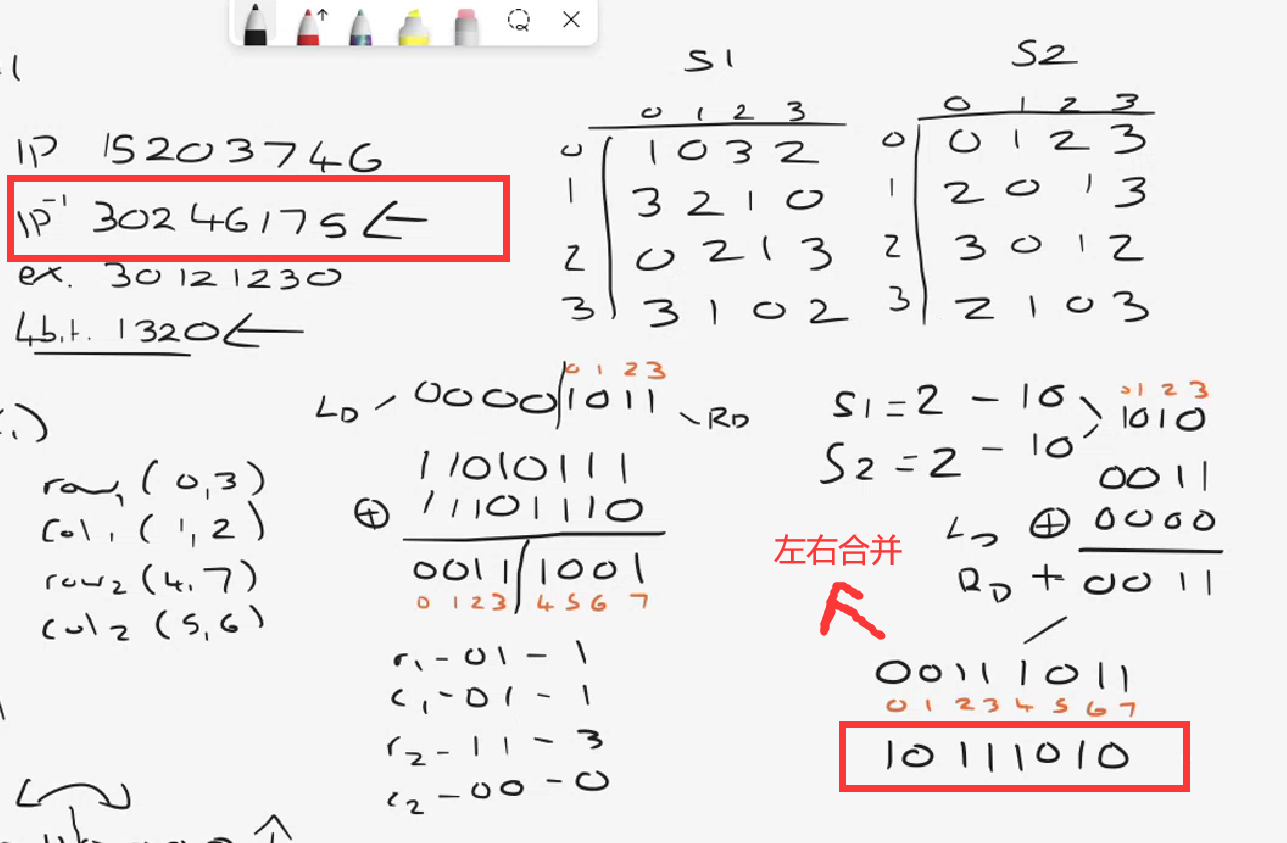 1
IP 15203746
IP⁻¹ 30246175 ←
ex. 30121230
4bit. 1320 ←
row₁ (0,3)
col₁ (1,2)
row₂ (4,7)
col₂ (5,6)
S1
0 1 2 3
0 1 0 3 2
1 3 2 1 0
2 0 2 1 3
3 3 1 0 2
S2
0 1 2 3
0 0 1 2 3
1 2 0 1 3
2 3 0 1 2
3 2 1 0 3
0 1 2 3
LD 0000 1011 RD
11010111
⊕ 11101110
0011 1001
0 1 2 3 4 5 6 7
r₁ - 01 - 1
c₁ - 01 - 1
r₂ - 11 - 3
c₂ - 00 - 0
S1 = 2 - 10
S2 = 2 - 10
0 1 2 3
1010
0011
LD ⊕ 0000
RD + 0011
左右合并
00111011
0 1 2 3 4 5 6 7
10111010